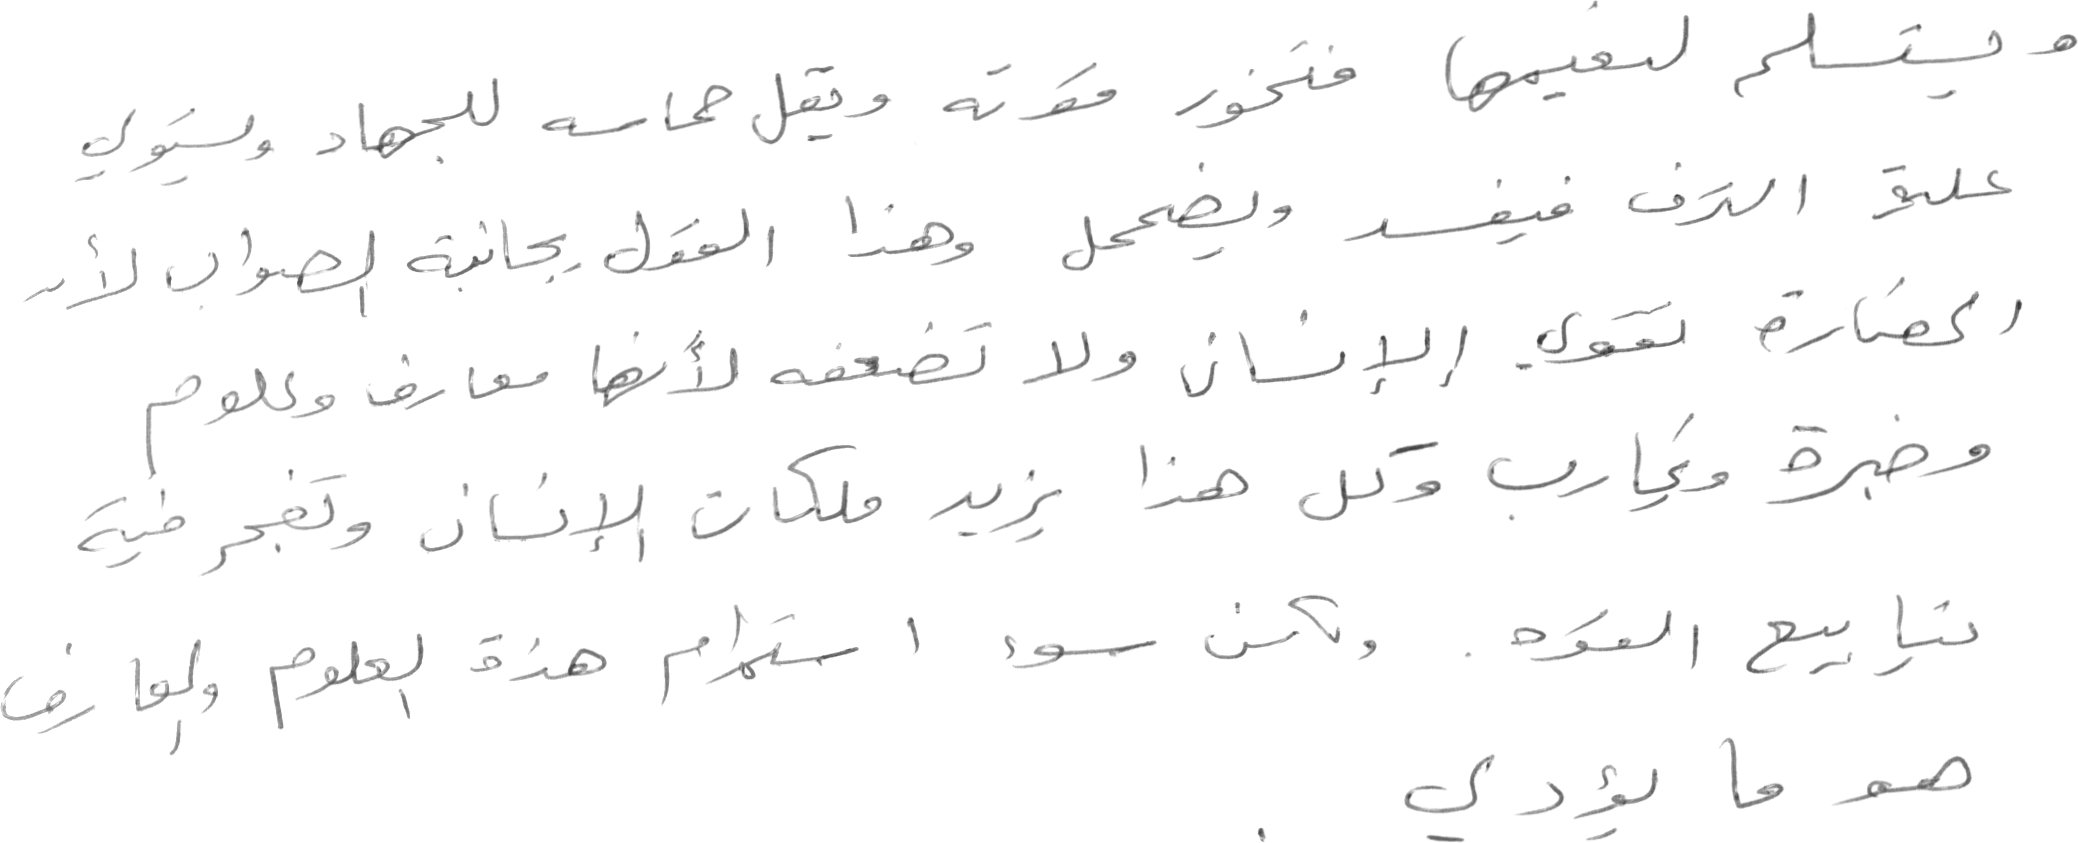 ويستسلم لنعيمها فتخور قوته ويقل حماسه للجهاد ويستولي
عليه الترف فيفسد ويضمحل وهذا القول بجانبة الصواب لأن
الحضارة تقوي الإنسان ولا تضعفه لأنها معارف وعلوم
وخبرة وتجارب وكل هذا يزيد ملكات الإنسان وتفجر فيه
ينابيع القوه . ولكن سوء استخدام هذة العلوم والمعارف
هو ما يؤدي .